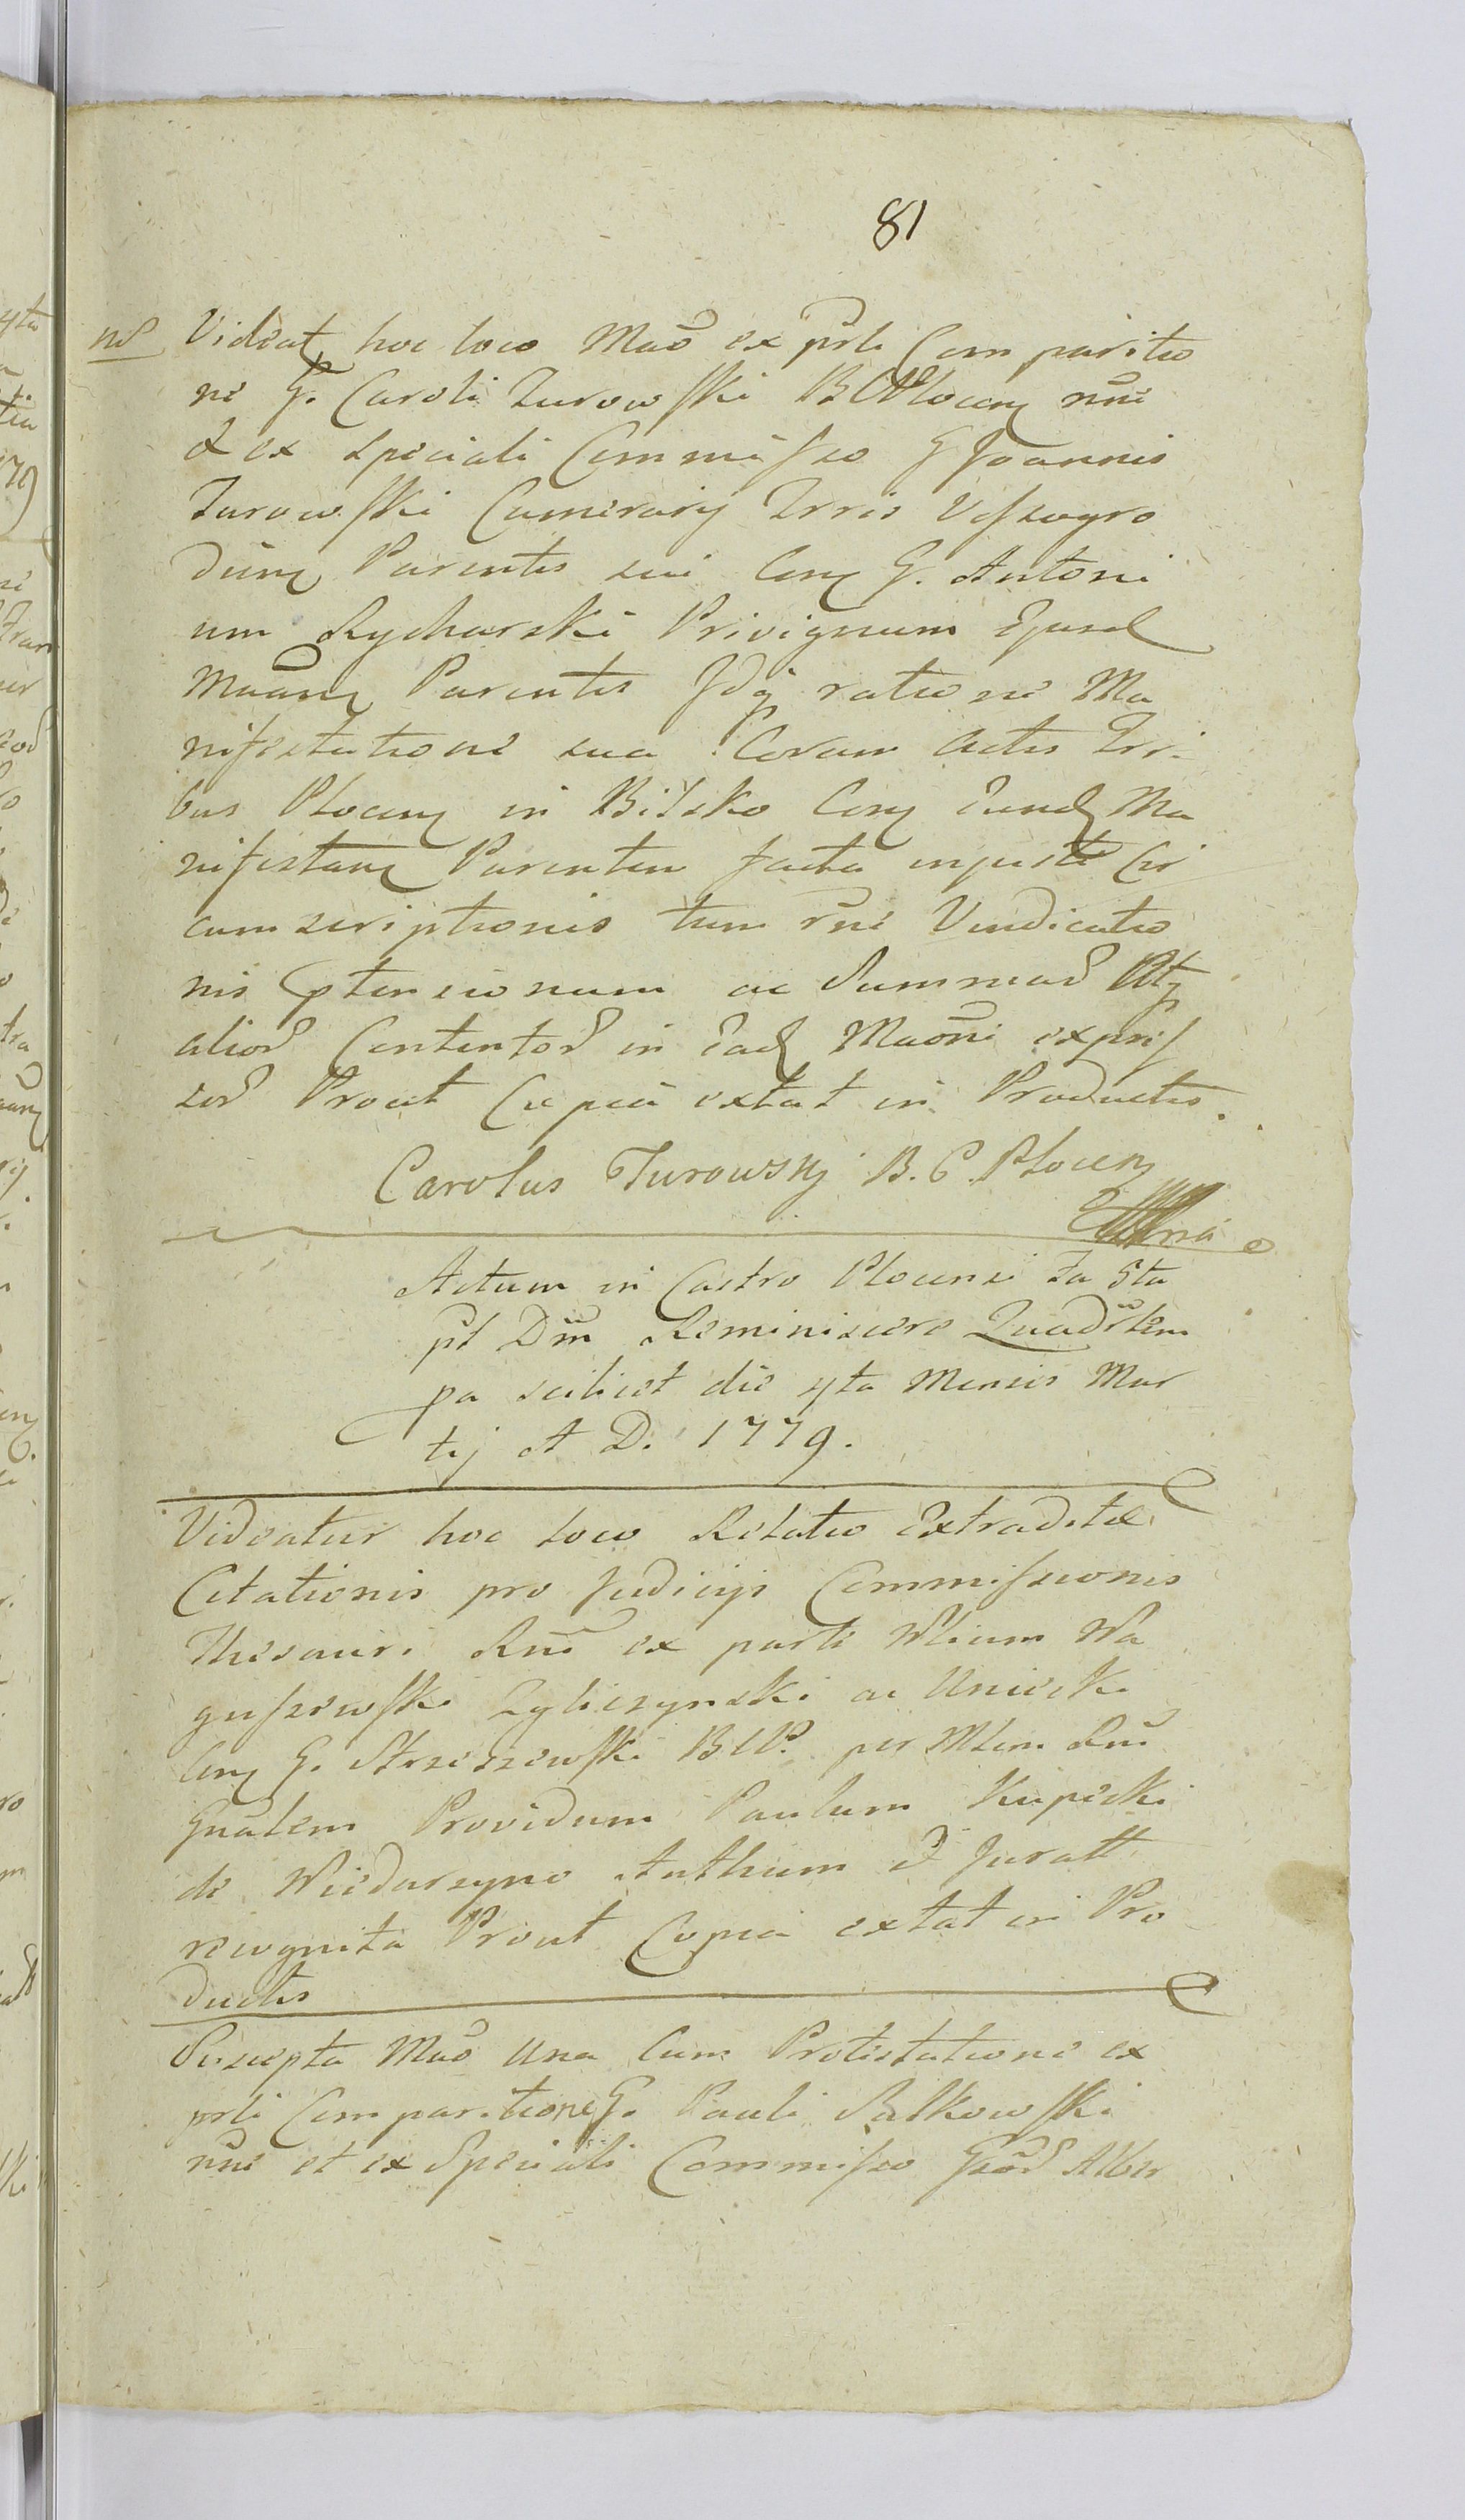 81
nd Videat hoc loco Mão ex prli Comparitio
ne G. Caroli Turowski BC Plocen nne
& ex speciali Commisso G Joannis
Turowski Camerarij Trris Vissogro
dien Parentis sui Con G. Antoni
um Rycharski Privignum Ejusd
Maan Parentis Idq ratione Ma
nifestatione sua Coram Actis Trri
bus Plocen in Bilsko Con Eund Ma
nifestan Parentem facta injuste Cir
cumscriptionis tum rne Vindicatio
nis ptensionum ac Summad Atq
aliod Contentod in Ead Maoni expres
sod Prout Copia extat in Productis.
Carolus Turowskj B. C. Plocen
Actum in Castro Plocensi Fa 5ta
pt Dm̃ Reminiscere Quadrtem
pa scilicet die 4ta Mensis Mar
tij A D. 1779.
Videatur hoc loco Relatio Extraditæ
Citationis pro Judicijs Commissionis
Thesauri Rni ex parte Mlium Wa
gussewski Zgliczynski ac Uniecki
Con G. Strzeszewski BCP. per Mtem Rni
Gnalem Providum Paulum Kupiecki
de Niedarzyno Authum & Juratt
recognita Prout Copia extat in Pro
ductis
Suscepta Mão una Cum Protestatione ex
prli Comparitione G. Pauli Sulkowski
nne et ex Speciali Commisso Gsod Alber